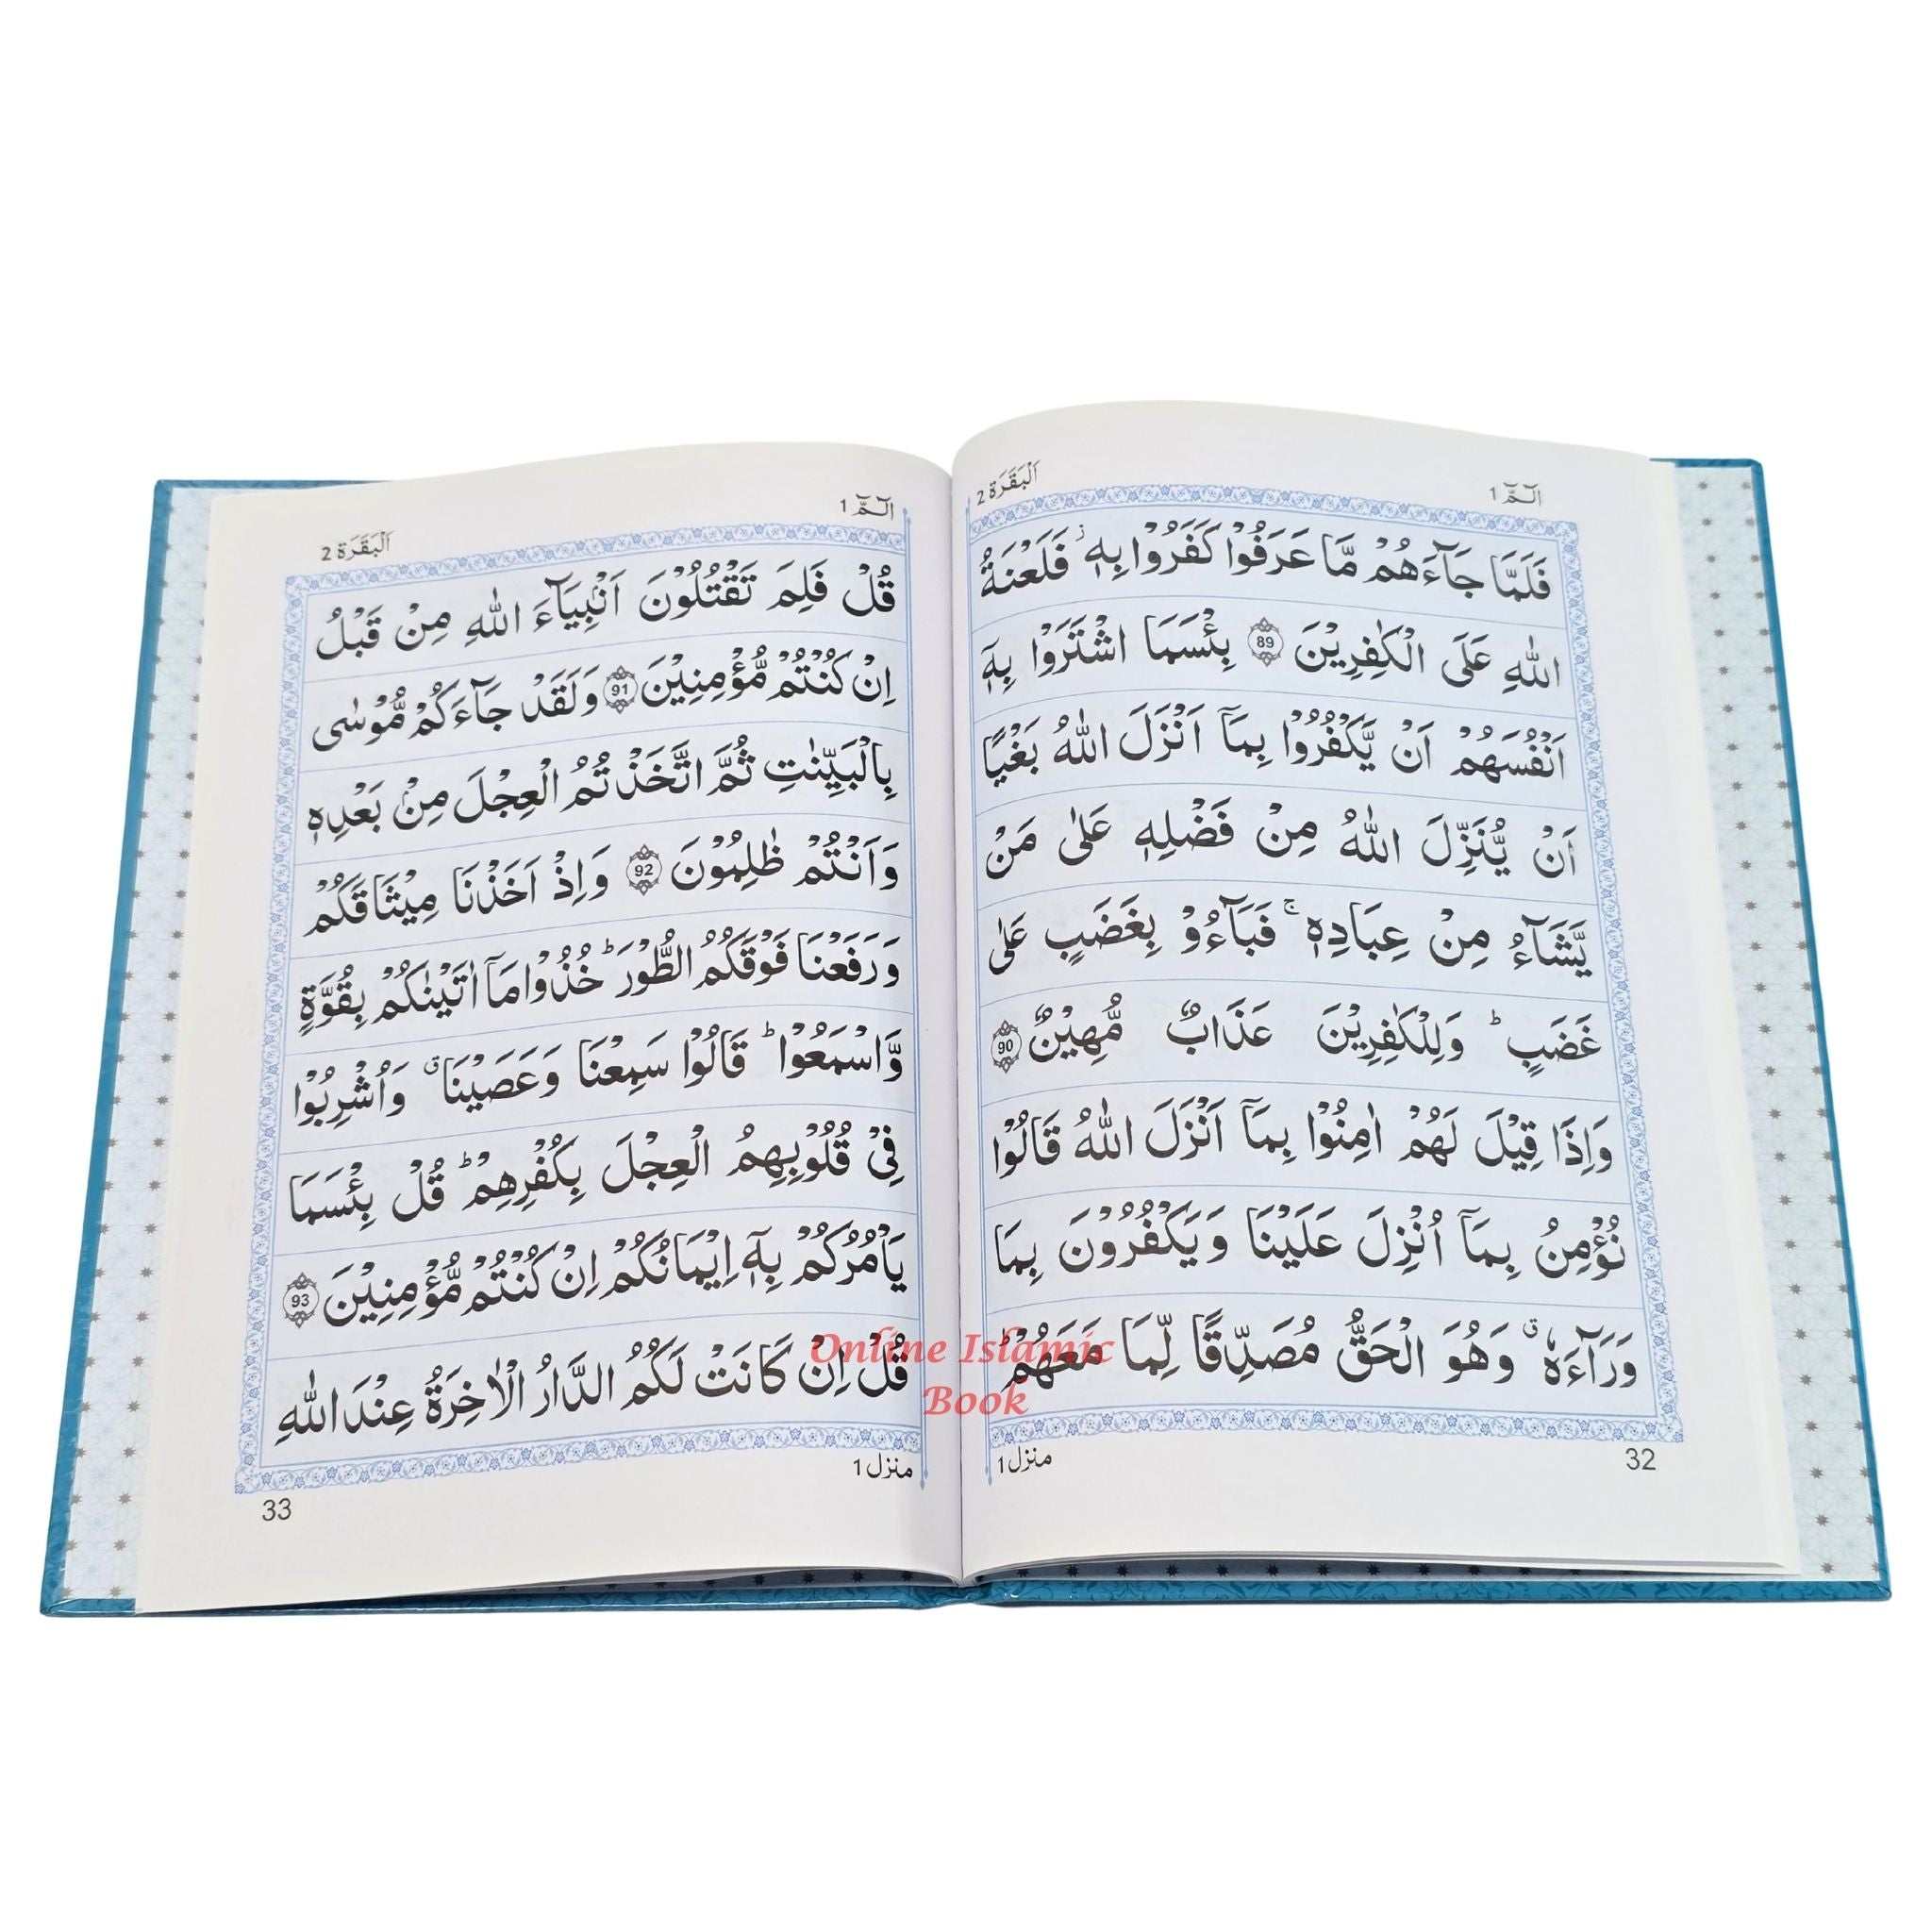 الٓمّٓ 1
اَلْبَقَرَة 2
فَلَمَّا جَآءَهُمْ مَّا عَرَفُوْا كَفَرُوْا بِهٖ ؗ فَلَعْنَةُ
اللّٰهِ عَلَى الْكٰفِرِيْنَ 89 بِئْسَمَا اشْتَرَوْا بِهٖۤ
اَنْفُسَهُمْ اَنْ يَّكْفُرُوْا بِمَاۤ اَنْزَلَ اللّٰهُ بَغْيًا
اَنْ يُّنَزِّلَ اللّٰهُ مِنْ فَضْلِهٖ عَلٰى مَنْ
يَّشَآءُ مِنْ عِبَادِهٖ ۚ فَبَآءُوْ بِغَضَبٍ عَلٰى
غَضَبٍ ؕ وَلِلْكٰفِرِيْنَ عَذَابٌ مُّهِيْنٌ 90
وَاِذَا قِيْلَ لَهُمْ اٰمِنُوْا بِمَاۤ اَنْزَلَ اللّٰهُ قَالُوْا
نُؤْمِنُ بِمَاۤ اُنْزِلَ عَلَيْنَا وَيَكْفُرُوْنَ بِمَا
وَرَآءَهٗ ۗ وَهُوَ الْحَقُّ مُصَدِّقًا لِّمَا مَعَهُمْ ؕ
منزل 1
32
الٓمّٓ 1
اَلْبَقَرَة 2
قُلْ فَلِمَ تَقْتُلُوْنَ اَنْۢبِيَآءَ اللّٰهِ مِنْ قَبْلُ
اِنْ كُنْتُمْ مُّؤْمِنِيْنَ 91 وَلَقَدْ جَآءَكُمْ مُّوْسٰى
بِالْبَيِّنٰتِ ثُمَّ اتَّخَذْتُمُ الْعِجْلَ مِنْۢ بَعْدِهٖ
وَاَنْتُمْ ظٰلِمُوْنَ 92 وَاِذْ اَخَذْنَا مِيْثَاقَكُمْ
وَرَفَعْنَا فَوْقَكُمُ الطُّوْرَ ؕ خُذُوْا مَاۤ اٰتَيْنٰكُمْ بِقُوَّةٍ
وَّاسْمَعُوْا ؕ قَالُوْا سَمِعْنَا وَعَصَيْنَا ۗ وَاُشْرِبُوْا
فِيْ قُلُوْبِهِمُ الْعِجْلَ بِكُفْرِهِمْ ؕ قُلْ بِئْسَمَا
يَاْمُرُكُمْ بِهٖۤ اِيْمَانُكُمْ اِنْ كُنْتُمْ مُّؤْمِنِيْنَ 93
قُلْ اِنْ كَانَتْ لَكُمُ الدَّارُ الْاٰخِرَةُ عِنْدَ اللّٰهِ
منزل 1
33
Online Islamic
Book